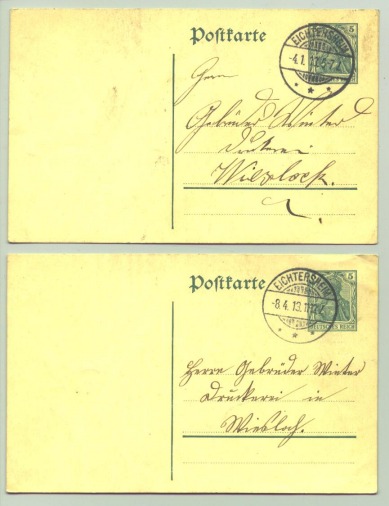 Postkarte
EICHTERSHEIM
5
Herrn
Gebrüder Winter
Druckerei
Wiesloch.
Postkarte
EICHTERSHEIM
-8.4.13.
5
DEUTSCHES REICH
Herrn Gebrüder Winter
Druckerei in
Wiesloch.